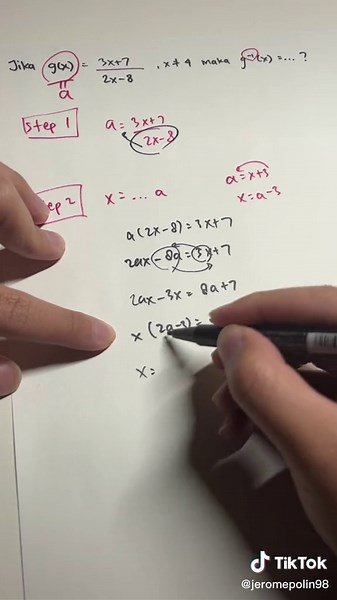 Jika g(x) = 3x+7 / 2x-8 , x ≠ 4 maka g⁻¹(x) = ... ?
a
Step 1
a = 3x+7 / 2x-8
2
x = ... a
a = x+3
x = a-3
a(2x-8) = 3x+7
2ax - 8a = 3x+7
2ax - 3x = 8a+7
x (2a-3) =
x =
TikTok
@jeromepolin98